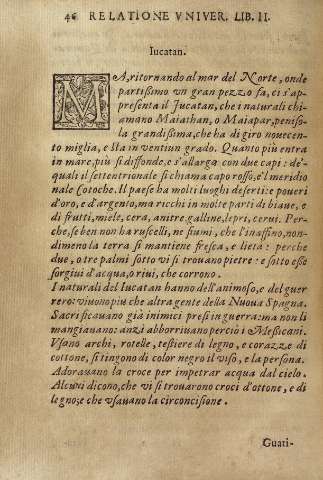 46 RELATIONE VNIVER. LIB. II.
Iucatan.
MA, ritornando al mar del Norte, onde
partißimo vn gran pezzo fa, ci s'ap-
presenta il Jucatan, che i naturali chi-
amano Maiathan, o Maiapar, penìso-
la grandißima, che ha di giro nouecen-
to miglia, e sta in ventiun grado. Quanto più entra
in mare, più si diffonde, e s'allarga con due capi: de'
quali il settentrionale si chiama capo rosso, e'l meridio
nale Cotoche. Il paese ha molti luoghi deserti: e poueri
d'oro, e d'argento, ma ricchi in molte parti di biaue, e
di frutti, miele, cera, anitre, galline, lepri, cerui. Per-
che, se ben non ha ruscelli, ne fiumi, che l'inaffino, non-
dimeno la terra si mantiene fresca, e lieta: perche
due, o tre palmi sotto vi si trouano pietre: e sotto esse
sorgiui d'acqua, o riui, che corrono.
I naturali del Iucatan hanno dell'animoso, e del guer
rero: viuono più che altra gente della Nuoua Spagna.
Sacrificauano già inimici presi in guerra: ma non li
mangiauano: anzi abborriuano perciò i Meßicani.
Vsano archi, rotelle, testiere di legno, e corazze di
cottone, si tingono di color negro il viso, e la persona.
Adorauano la croce per impetrar acqua dal cielo.
Alcuni dicono, che vi si trouarono croci d'ottone, e di
legno; e che vsauano la circoncisione.
Guati-